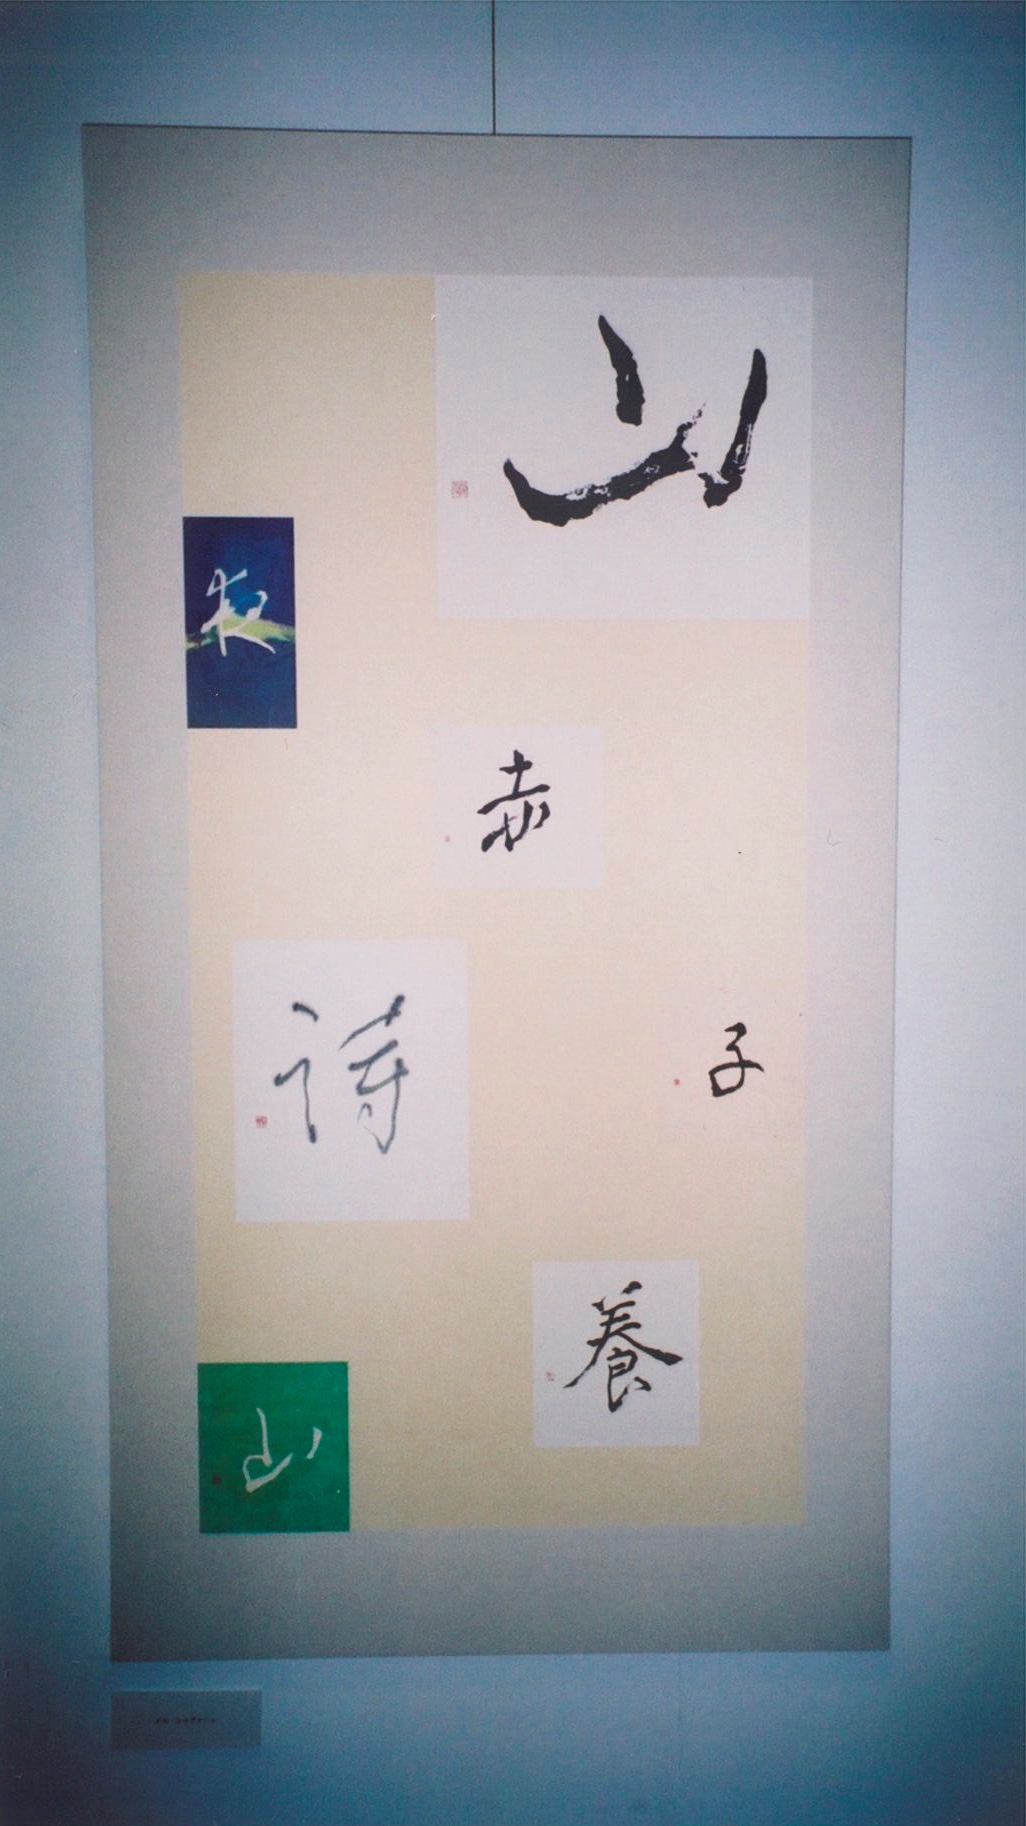 山
夜
赤
子
詩
養
山